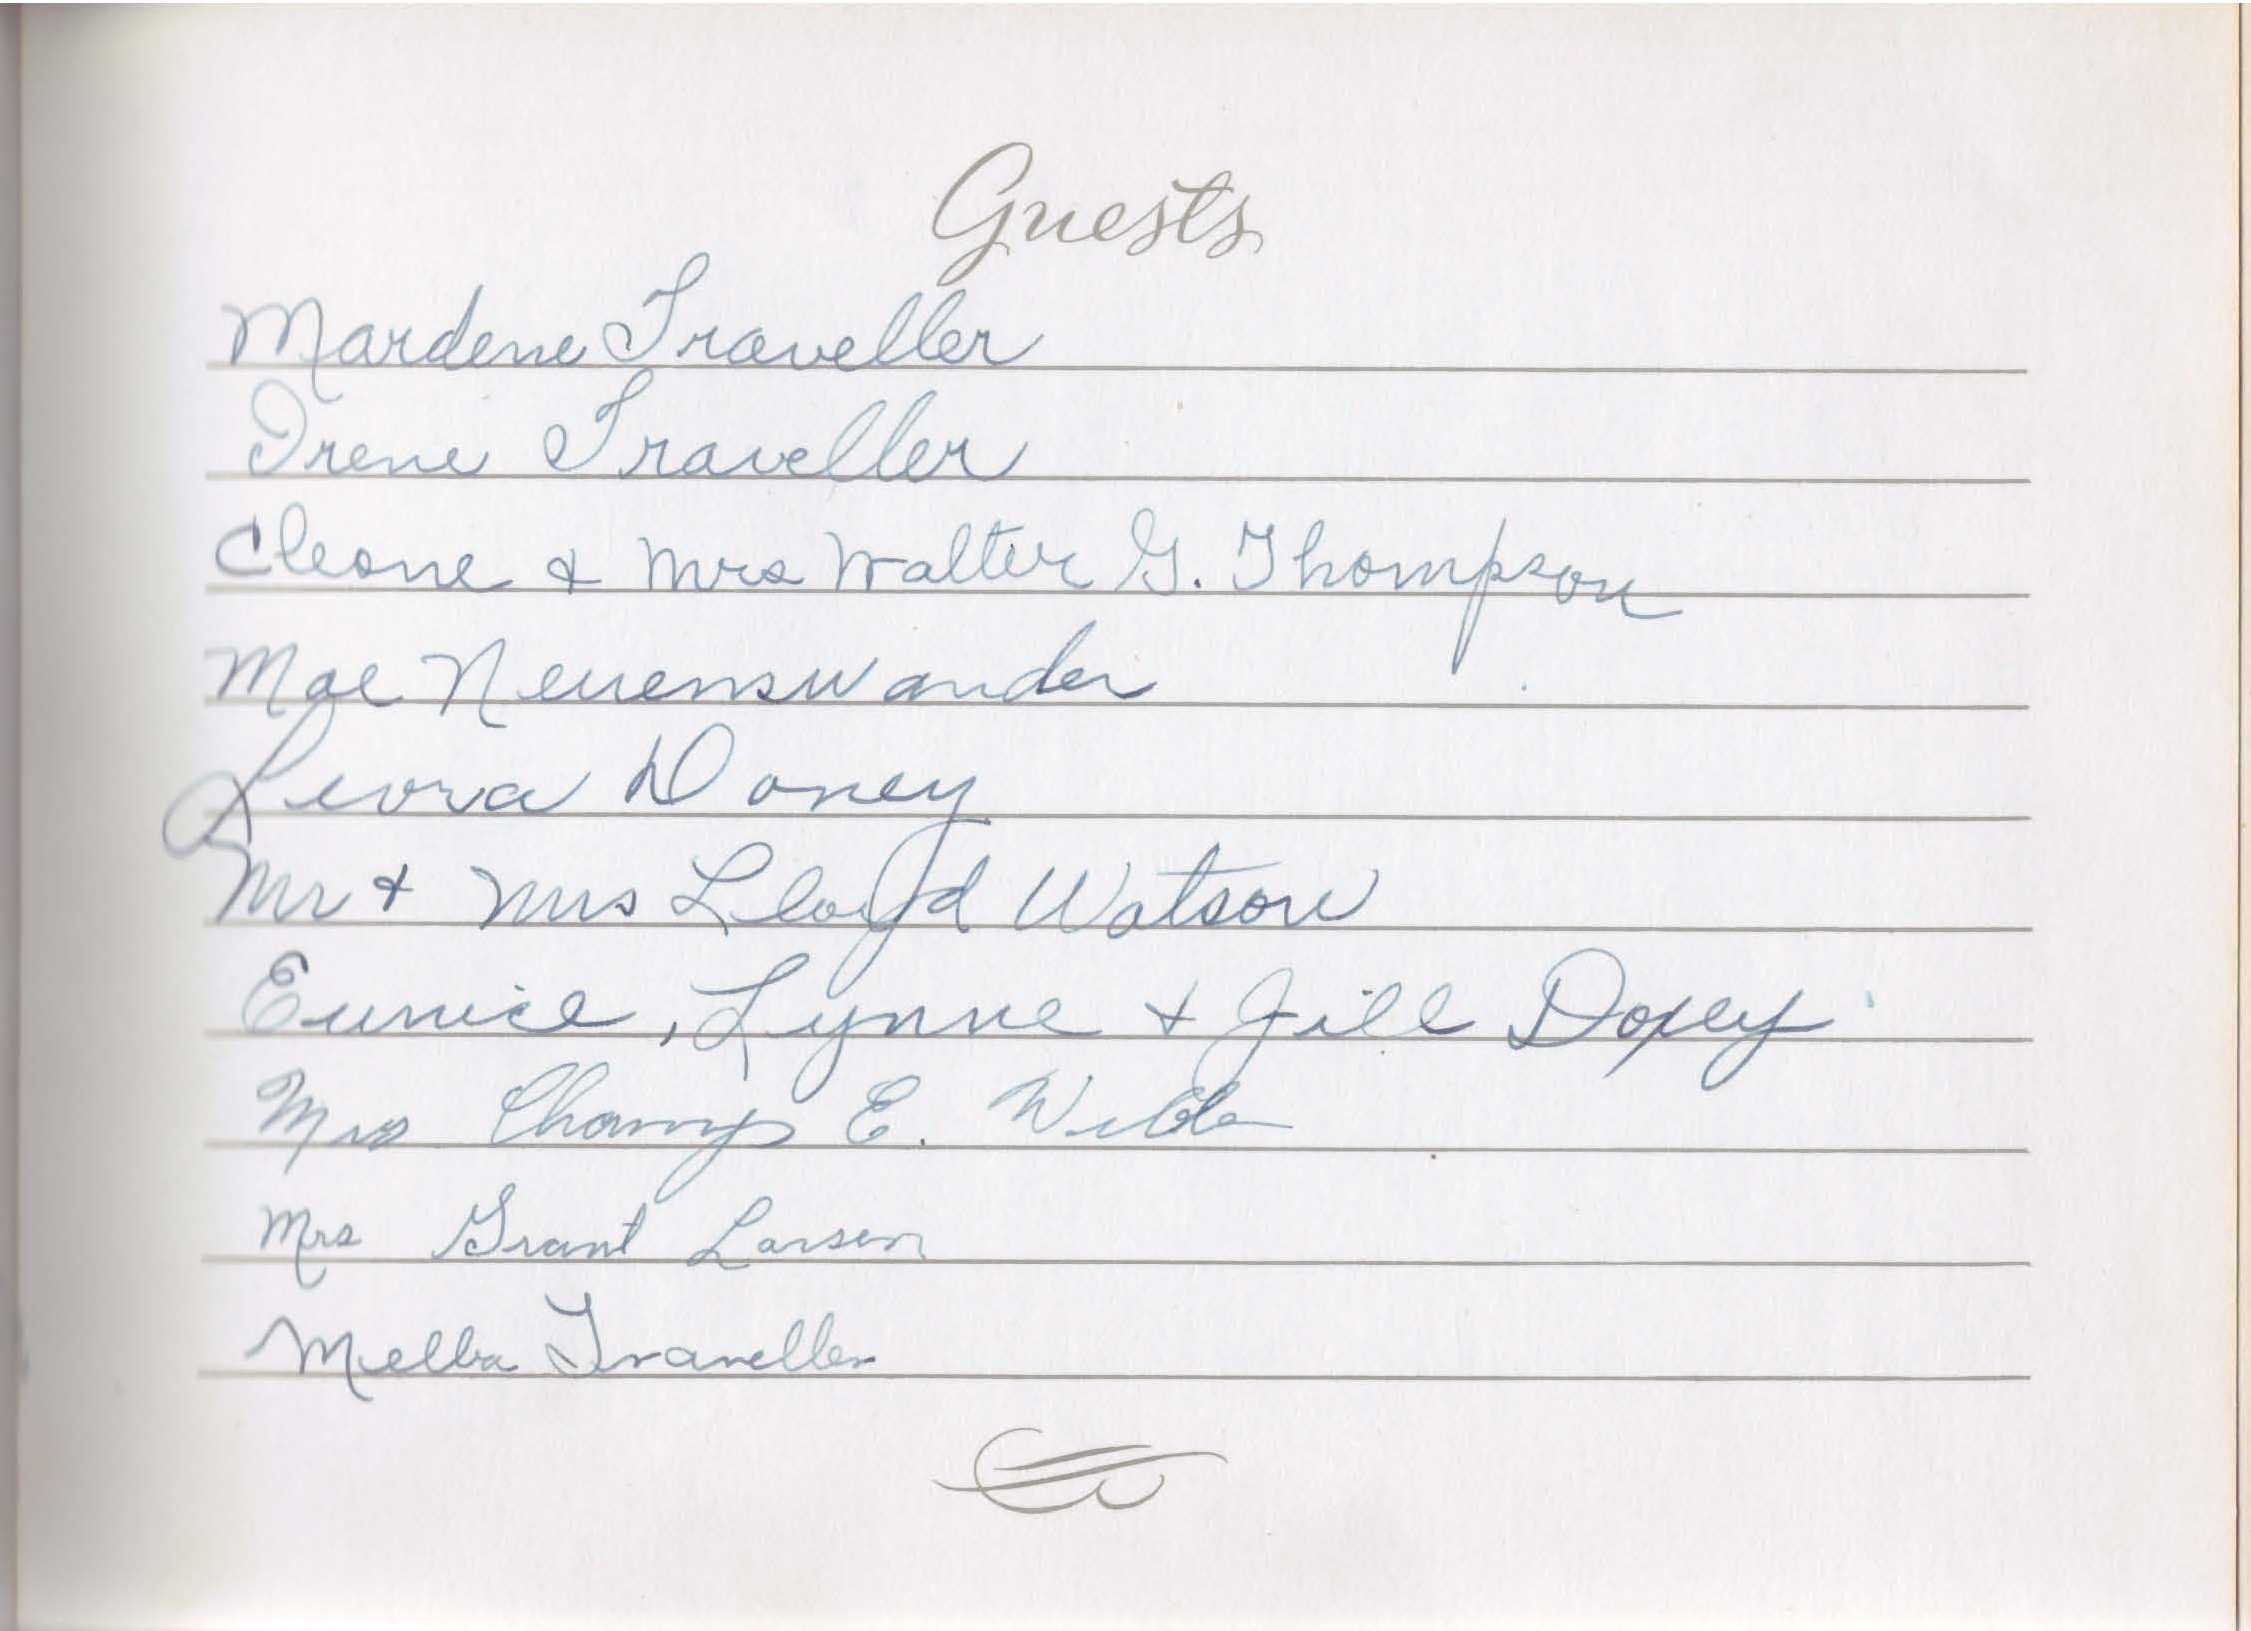 Guests
Mardene Traveller
Irene Traveller
Cleone & Mrs Walter G. Thompson
Mae Neuenswander
Leora Doney
Mr & Mrs Lloyd Watson
Eunice, Lynne & Jill Doxey
Mrs Champ E.
Mrs Grant Larsen
Melba Traveller